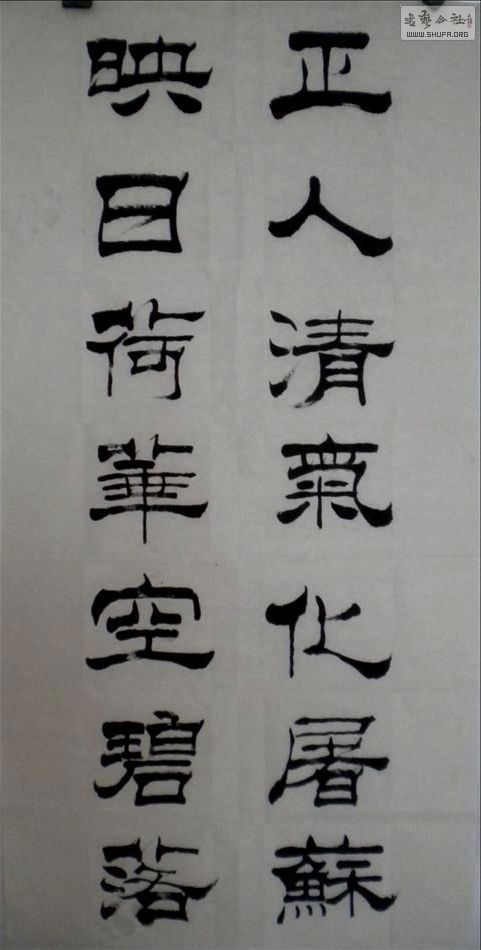 正人清氣化屠蘇
映日荷華空碧落
書藝公社
WWW.SHUFA.ORG